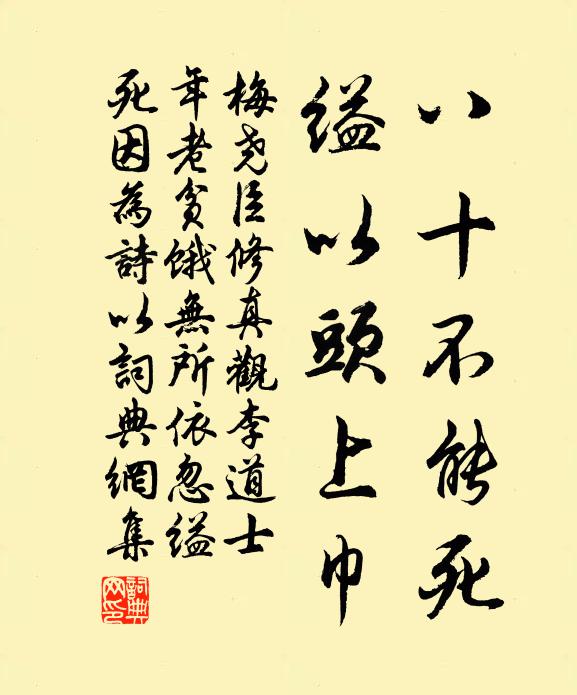 八十不能死
縊以頭上巾
梅堯臣修真觀李道士
年老貧餓無所依忽縊
死因為詩以詞典網集
詞典網印